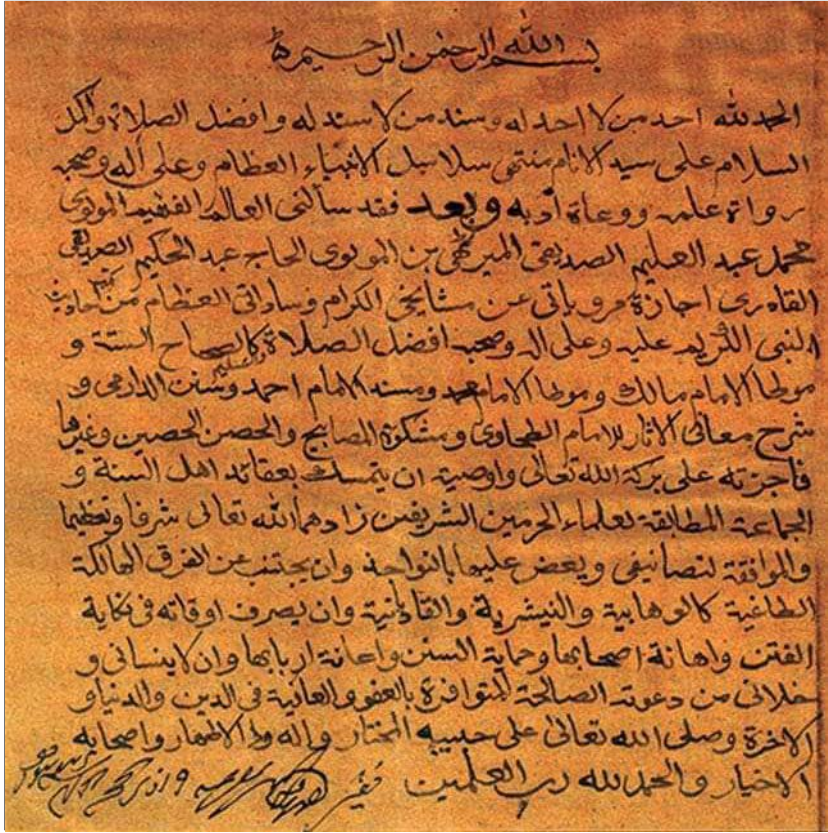 بسم الله الرحمن الرحيم
الحمد لله احد من لا احد له وسند من لا سند له وافضل الصلاة واكمل
السلام على سيد الانام منتهى سلاسل الانبياء العظام وعلى آله وصحبه
رواة علمه ووعاة ادبه وبعد فقد سألنى العالم الفهيم المولوى
محمد عبد العليم الصديقى الميرتهى بن المولوى الحاج عبد الحكيم الصديقى
القادرى اجازة مروياتى عن مشايخى الكرام وساداتى العظام من احاديث
النبى الكريم عليه وعلى اله وصحبه افضل الصلاة والتسليم كالصحاح الستة و
موطا الامام مالك وموطا الامام محمد ومسند الامام احمد وسنن الدارمى و
شرح معانى الاثار للامام الطحاوى ومشكوة المصابيح والحصن الحصين وغيرها
فاجزته على بركة الله تعالى واوصيته ان يتمسك بعقائد اهل السنة و
الجماعة المطابقة لعلماء الحرمين الشريفين زادهما الله تعالى شرفا وتعظيما
والموافقة لتصانيفى ويعض عليها بالنواجذ وان يجتنب عن الفرق الهالكة
الطاغية كالوهابية والنيشرية والقاديانية وان يصرف اوقاته فى نكاية
الفتن واهانة اصحابها وحماية السنن واعانة اربابها وان لا ينسانى و
خلانى من دعوته الصالحة المتوافرة بالعفو والعافية فى الدين والدنيا و
الاخرة وصلى الله تعالى على حبيبه المختار واله الاطهار واصحابه
الاخيار والحمد لله رب العلمين فقير